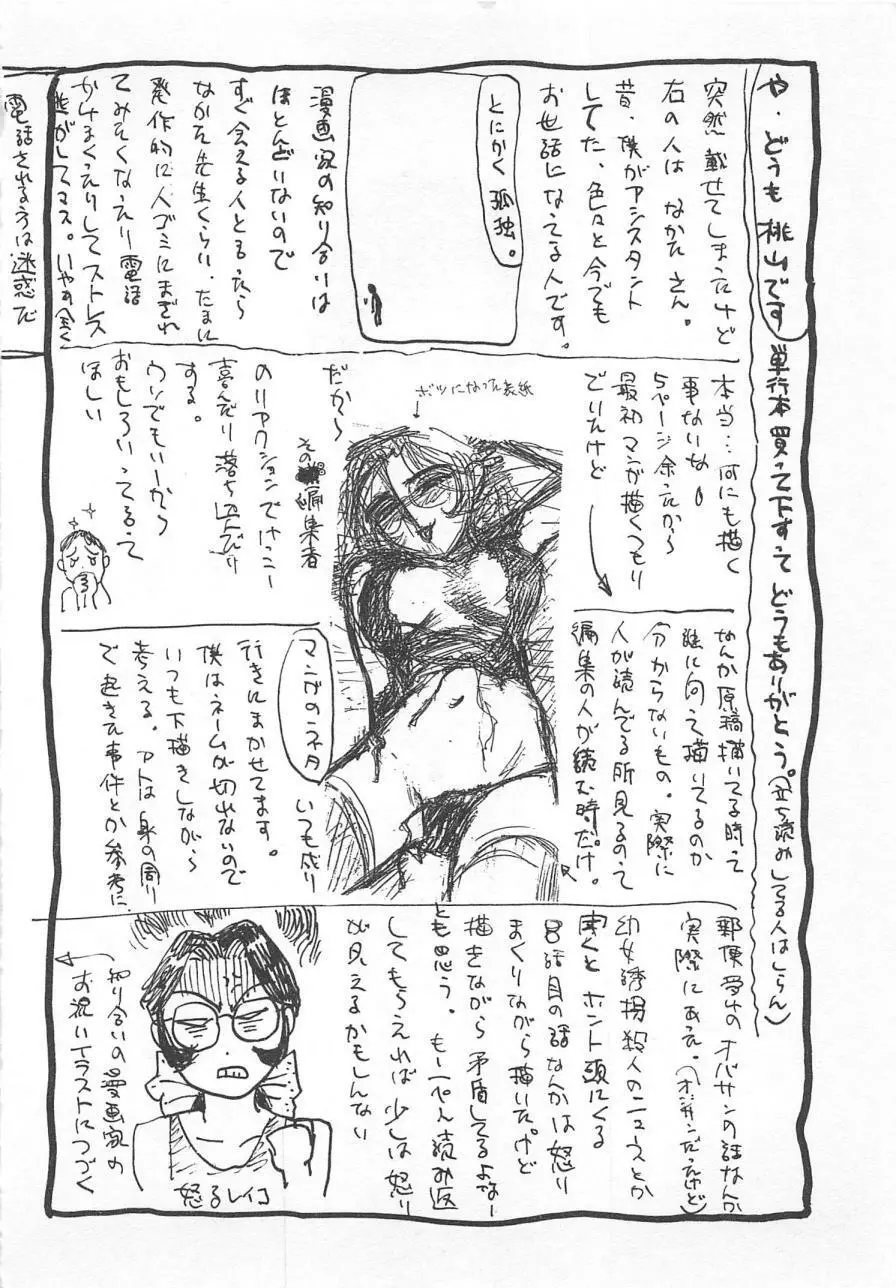 や・どうも 桃山です
単行本買って下すって どうもありがとう。(立ち読みしてる人はしらん)
突然 載せてしまったけど
右の人は なかた さん。
昔、僕がアシスタント
してた、色々と今でも
お世話になってる人です。
とにかく 孤独。
漫画家の知り合いは
ほとんどいないので
すぐ会える人とゆったら
なかた先生くらい。たまに
発作的に人ゴミにまぎれ
てみたくなったり電話
かけまくったりしてストレス
逃がしてマス。いやまったく
電話される方は迷惑だ
本当…何にも描く
事ないな。
5ページ余ったから
最初 マンガ描くつもり
でいたけど
なんか原稿描いてる時って
誰に向って描いてるのか
分からないもの。実際に
人が読んでる所見るのって
編集の人が読む時だけ。
ボツになった表紙
だから
その編集者
のリアクションでけっこー
喜んだり落ち込んだり
する。
ウソでもいーから
おもしろいってゆって
ほしい
マンガのネタ
いつも成り
行きにまかせてます。
僕はネームが切れないので
いつも下描きしながら
考える。アトは身の周り
で起きた事件とか参考に
郵便受けのオバサンの話なんか
実際にあった。(オジサンだったけど)
幼女誘拐殺人のニュースとか
聞くと ホント頭にくる
8話目の話なんかは怒り
まくりながら描いた。けど
描きながら矛盾してるよなー
とも思う。もーぺん読み返
してもらえれば 少しは怒り
が見えるかもしんない
怒るレイコ
知り合いの漫画家の
お祝いイラストにつづく